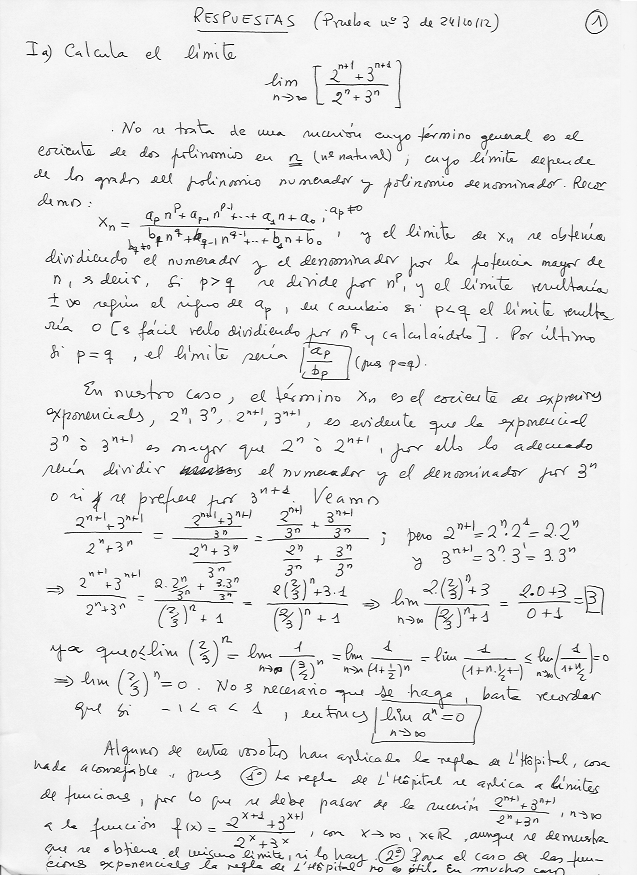 RESPUESTAS (Prueba nº 3 de 24/10/12) 1
Ia) Calcula el límite
lim n→∞ [ (2^{n+1} + 3^{n+1}) / (2^n + 3^n) ]
. No se trata de una sucesión cuyo término general es el
cociente de dos polinomios en n (nº natural), cuyo límite depende
de los grados del polinomio numerador y polinomio denominador. Recor
demos:
x_n = (a_p n^p + a_{p-1} n^{p-1} + ... + a_1 n + a_0) / (b_q n^q + b_{q-1} n^{q-1} + ... + b_1 n + b_0) ; a_p ≠ 0 b_q ≠ 0 , y el límite de x_n se obtenía
dividiendo el numerador y el denominador por la potencia mayor de
n, es decir, si p > q se divide por n^p, y el límite resultaría
± ∞ según el signo de a_p, en cambio si p < q el límite resulta
ría 0 [es fácil verlo dividiendo por n^q y calculándolo]. Por último
si p = q, el límite sería a_p / b_p (pues p = q).
En nuestro caso, el término x_n es el cociente de expresiones
exponenciales, 2^n, 3^n, 2^{n+1}, 3^{n+1}, es evidente que la exponencial
3^n ò 3^{n+1} es mayor que 2^n ò 2^{n+1}, por ello lo adecuado
sería dividir el numerador y el denominador por 3^n
o si se prefiere por 3^{n+1}. Veamos
(2^{n+1} + 3^{n+1}) / (2^n + 3^n) = ((2^{n+1} + 3^{n+1}) / 3^n) / ((2^n + 3^n) / 3^n) = (2^{n+1}/3^n + 3^{n+1}/3^n) / (2^n/3^n + 3^n/3^n) ; pero 2^{n+1} = 2^n · 2^1 = 2 · 2^n
y 3^{n+1} = 3^n · 3^1 = 3 · 3^n
⇒ (2^{n+1} + 3^{n+1}) / (2^n + 3^n) = (2·2^n/3^n + 3·3^n/3^n) / ((2/3)^n + 1) = (2(2/3)^n + 3·1) / ((2/3)^n + 1) ⇒ lim n→∞ (2·(2/3)^n + 3) / ((2/3)^n + 1) = (2·0+3) / (0+1) = 3
ya que 0 ≤ lim (2/3)^n = lim n→∞ 1 / (3/2)^n = lim n→∞ 1 / (1+1/2)^n = lim 1 / (1+n·1/2+··) ≤ lim n→∞ 1 / (1+n/2) = 0
⇒ lim (2/3)^n = 0. No es necesario que se haga, basta recordar
que si -1 < a < 1, entonces lim n→∞ a^n = 0
Algunos de entre vosotros han aplicado la regla de L'Hôpital, cosa
nada aconsejable, pues 1º La regla de L'Hôpital se aplica a límites
de funciones, por lo que se debe pasar de la sucesión (2^{n+1} + 3^{n+1}) / (2^n + 3^n), n→∞
a la función f(x) = (2^{x+1} + 3^{x+1}) / (2^x + 3^x), con x→∞, x∈R, aunque se demuestra
que se obtiene el mismo límite, si lo hay. 2º Para el caso de las fun
ciones exponenciales la regla de L'Hôpital no es útil. En muchos casos